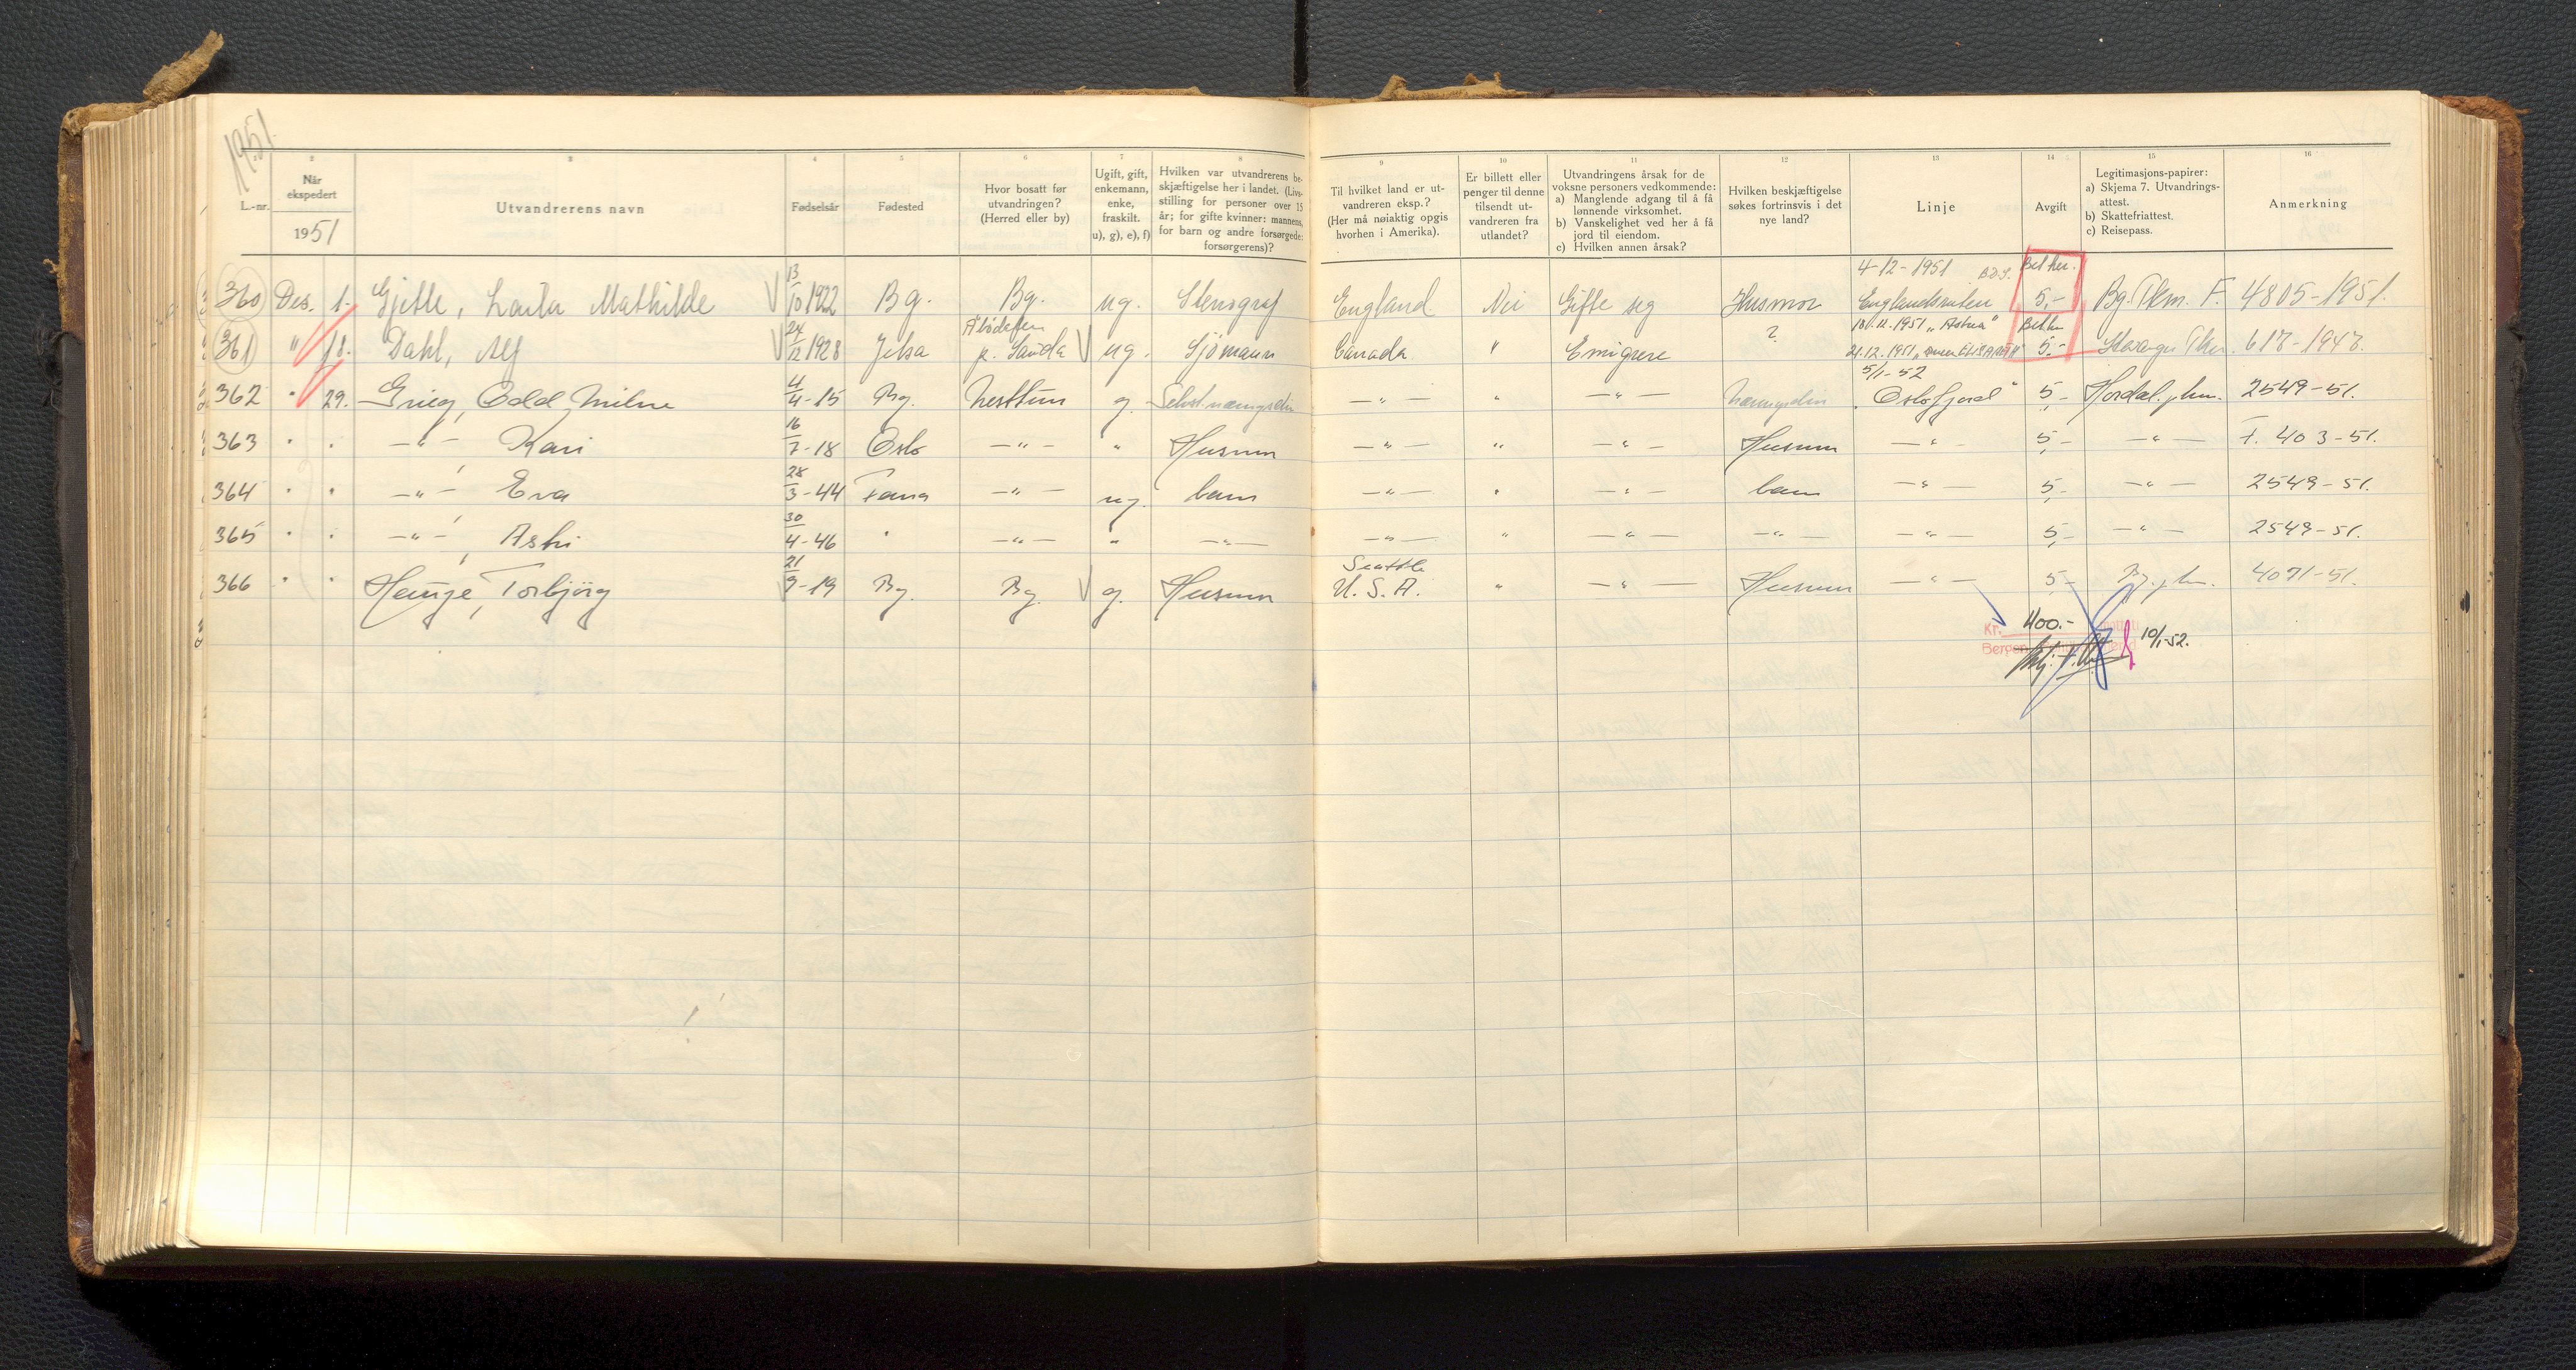 1951
1 2 3 4 5 6 7 8 9 10 11 12 13 14 15 16
L.-nr. Når ekspedert 1951 Utvandrerens navn Fødselsår Fødested Hvor bosatt før utvandringen? (Herred eller by) Ugift, gift, enkemann, enke, fraskilt. u), g), e), f) Hvilken var utvandrerens beskjæftigelse her i landet. (Livsstilling for personer over 15 år; for gifte kvinner: mannens, for barn og andre forsørgede: forsørgerens)? Til hvilket land er utvandreren eksp.? (Her må nøiaktig opgis hvorhen i Amerika). Er billett eller penger til denne tilsendt utvandreren fra utlandet? Utvandringens årsak for de voksne personers vedkommende: a) Manglende adgang til å få lønnende virksomhet. b) Vanskelighet ved her å få jord til eiendom. c) Hvilken annen årsak? Hvilken beskjæftigelse søkes fortrinsvis i det nye land? Linje Avgift Legitimasjons-papirer: a) Skjema 7. Utvandringsattest. b) Skattefriattest. c) Reisepass. Anmerkning
360 Des. 1. Gjelle, Laila Mathilde 13/10 1922 Bg. Bg. ug. Stenograf England Nei Gifte seg Husmor 4-12-1951 B.D.S. Englandsruten 5,- Bg. F. 4805-1951.
361 " 18. Dahl, Alf 24/12 1928 Jelsa p. Sauda ug. Sjømann Canada " Emigrere ? 18.12.1951 "Astrea" 21.12.1951 5.- 618-1948.
362 " 29. Grieg, Odd Milne 4/4-15 Bg. Nesttun g. Canada 5/1-52 "Oslofjord" 5,- Hordal. 2549-51.
363 " " -"- , Kari 16/7-18 Oslo -"- " Husmor -"- " -"- Husmor -"- 5,- -"- F. 403-51.
364 " " -"- , Eva 28/3-44 Fana -"- ug. barn -"- " -"- barn -"- 5,- -"- 2549-51.
365 " " -"- , Astri 30/4-46 " -"- " -"- -"- " -"- -"- -"- 5,- -"- 2549-51.
366 " " Hauge, Torbjørg 21/9-19 Bg. Bg. g. Husmor Seattle U.S.A. " -"- Husmor -"- 5,- Bg. 4071-51.
Kr. 400.-
Bergen 10/1-52.